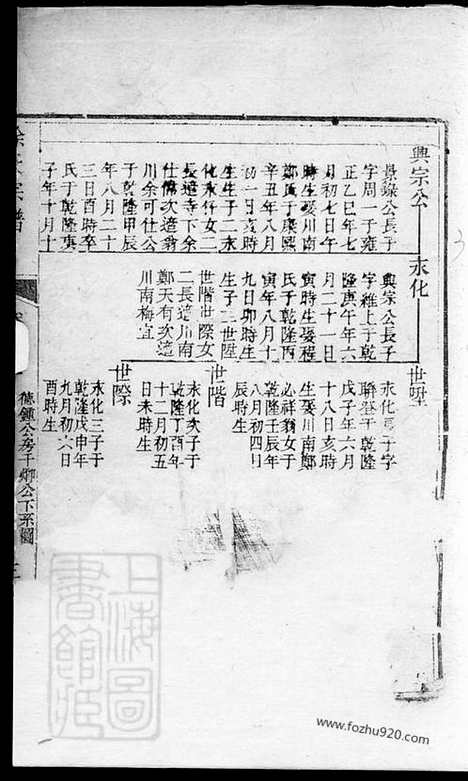 興宗公
永化
景錄公長子
字周一于雍
正乙巳年七
月初七日午
時生娶川南
鄭氏于康熙
辛丑年八月
初一日亥時
生生子二永
化永作女二
長適下余
仕儒次適翁
川余可仕公
于乾隆甲辰
年八月二十
三日酉時卒
氏于乾隆庚
子年十月十
興宗公長子
字維上于乾
隆庚午年六
月二十一日
寅時生娶程
氏于乾隆丙
寅年八月十
九日卯時生
生子三世陞
世階世際女
二長適川南
鄭天有次適
川南梅宜
世陞
永化長子字
聯登于乾隆
戊子年六月
十八日亥時
生娶川南鄭
必祥翁女于
乾隆壬辰年
八月初四日
辰時生
世階
永化次子于
乾隆丁酉年
十二月初五
日未時生
世際
永化三子于
乾隆戊申年
九月初六日
酉時生
徐氏宗譜
德鍾公房千鄉公下系圖
上海圖書館藏
www.fozhu920.com